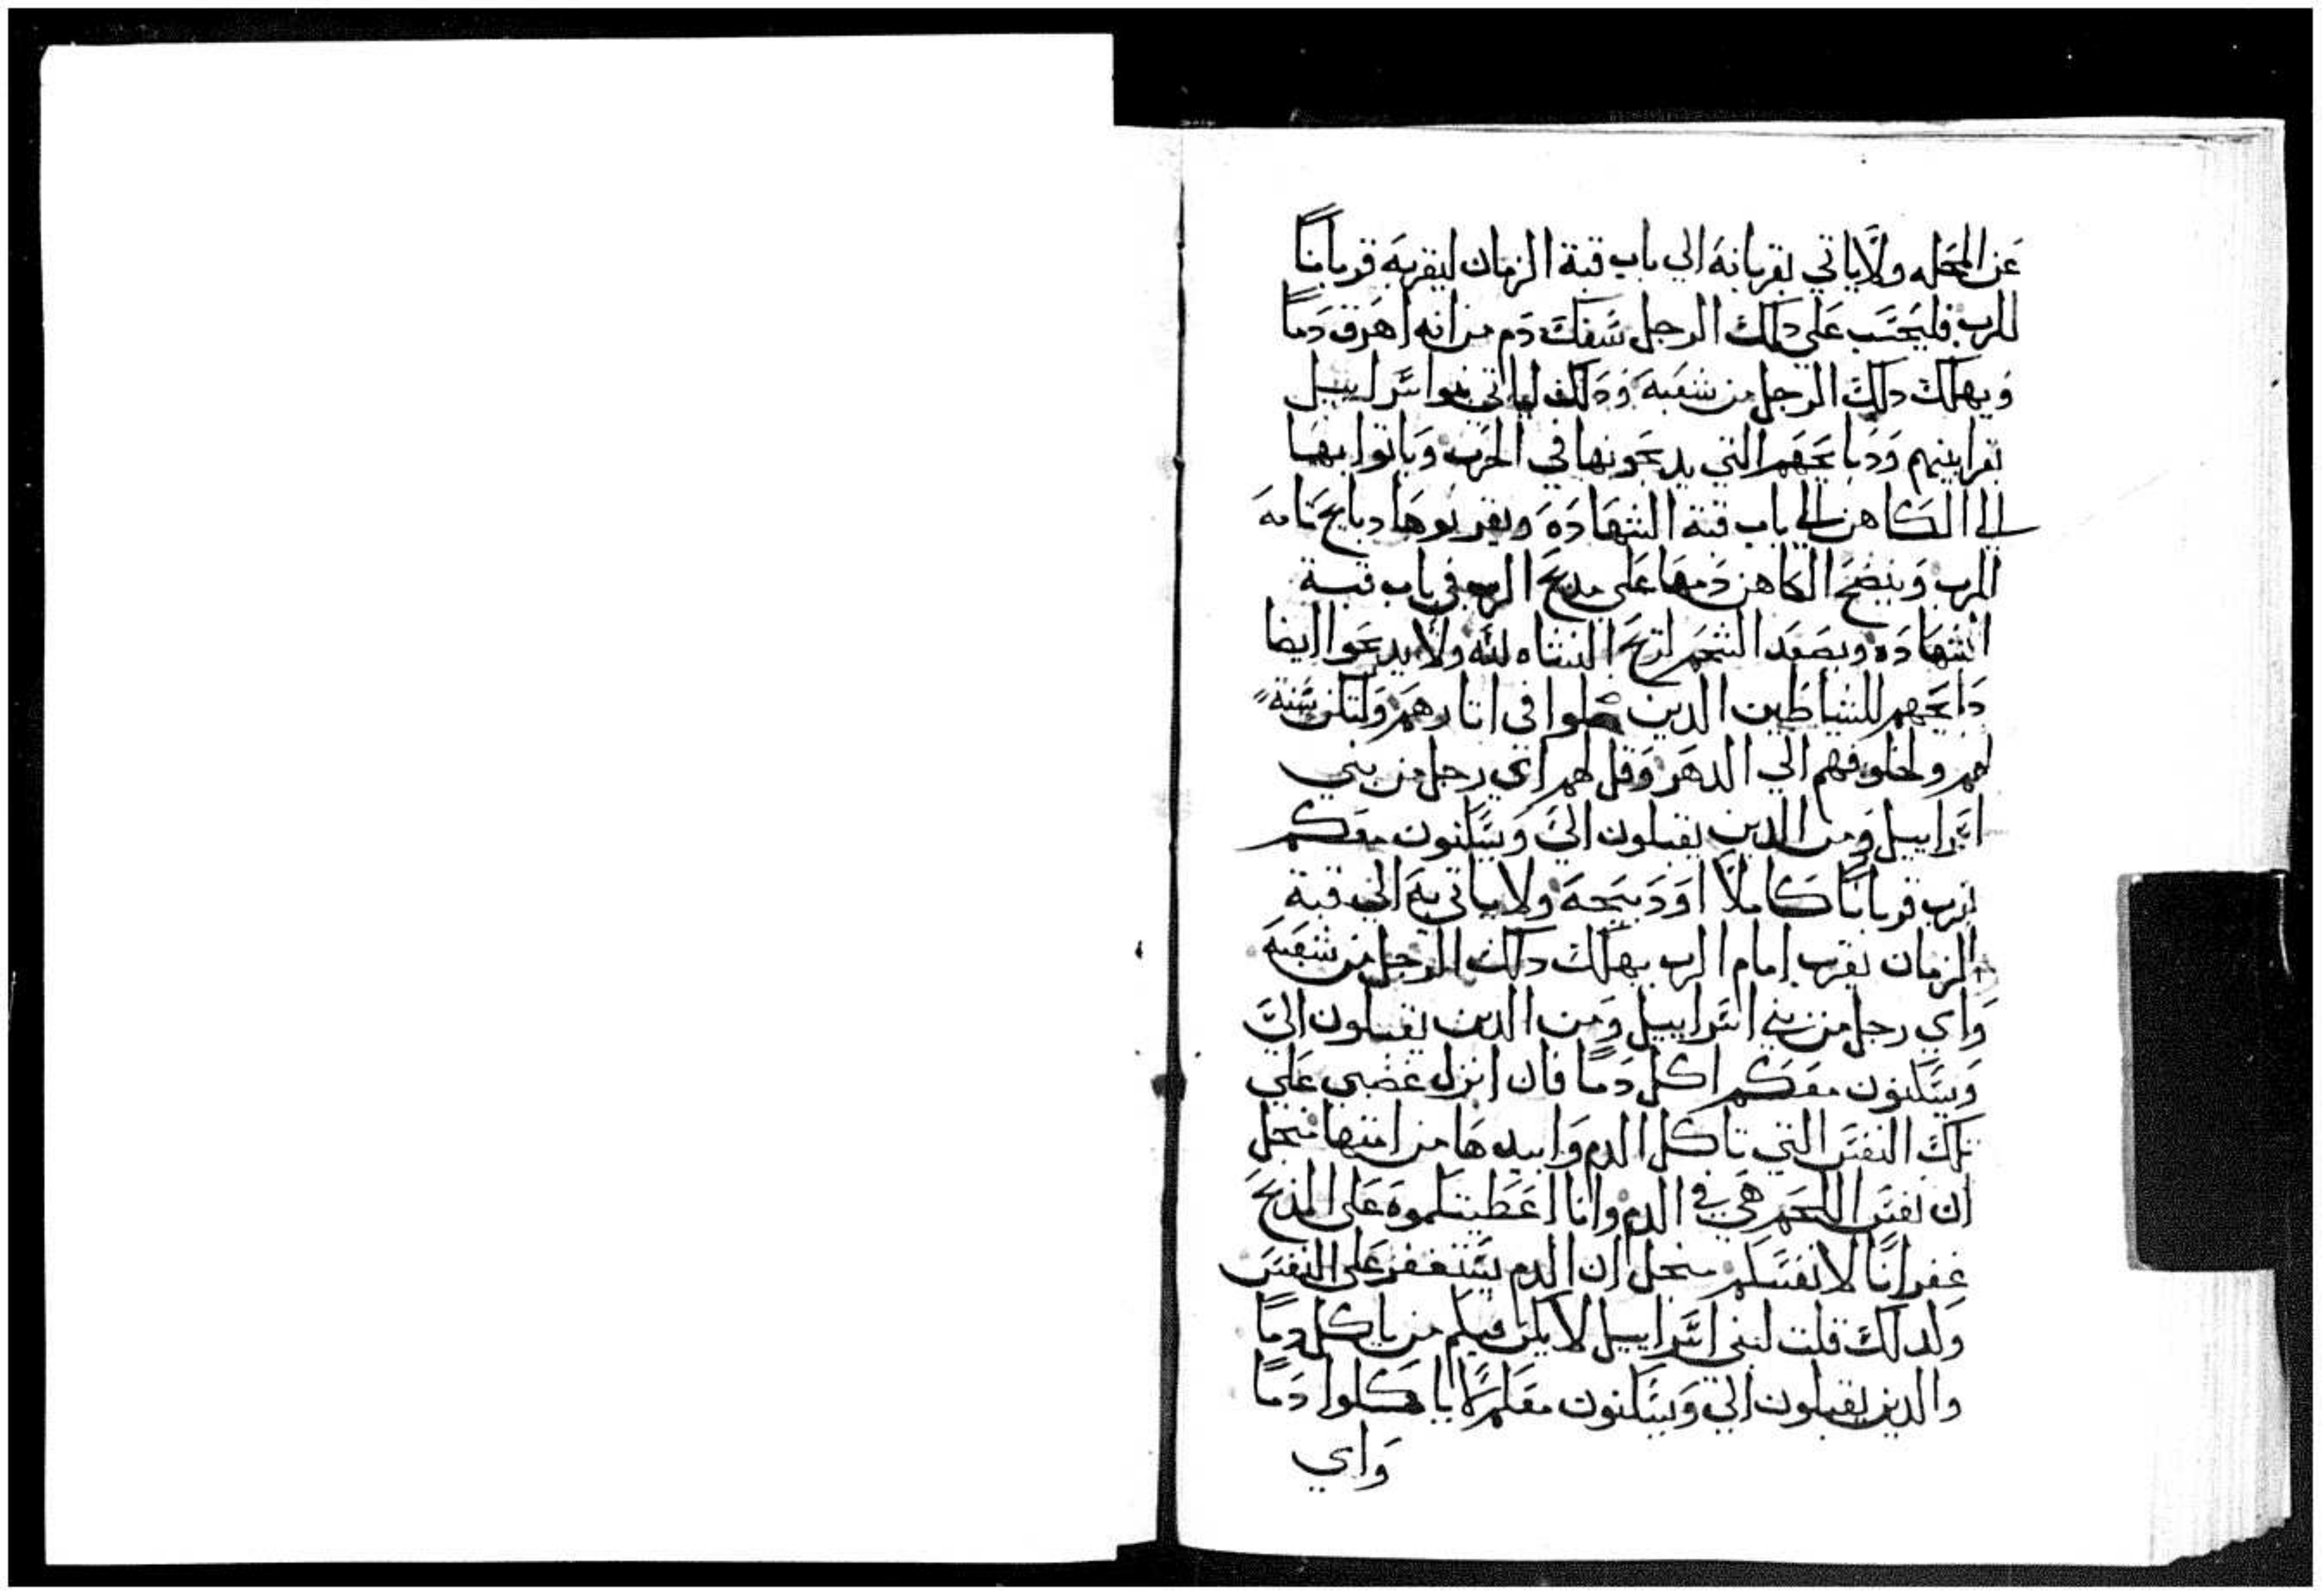 عن المحله ولا ياتي بقربانه الي باب قبة الزمان ليقربه قرباناً
للرب فليحتسب علي دلك الرجل سفك دم من انه اهرق دماً
ويهلك دلك الرجل من شعبه ودلك لياتي بنوا اسراييل
بقرابينهم ودبايحهم التي يدبحونها في الحرب وياتوا بها
الي الكاهن الي باب قبة الشهاده ويقربوها دبايح تامه
للرب وينضح الكاهن دمها علي مدبح الرب في باب قبة
الشهاده ويصعد الشحم لريح النشاه لله ولا يدبحوا ايضا
دبايحهم للشياطين الدين ضلوا في اتارهم ولتكن سنة
لهم ولخلوفهم الي الدهر وقل لهم اي رجل من بني
اسراييل ومن الدين يقبلون الي ويسكنون معكم
يقرب قرباناً كاملاً او دبيحه ولا ياتي به الي قبة
الزمان يقرب امام الرب يهلك دلك الرجل من شعبه
واي رجل من بني اسراييل ومن الدين يقبلون اليَّ
ويسكنون معكم اكل دماً فان انزل غضبي علي
تلك النفس التي تاكل الدم وابيدها من امتها منجل
ان نفس اللحم هي في الدم وانا اعطيتكموه علي المذبح
غفراناً لانفسكم منجل ان الدم يستغفر علي النفس
ولدلك قلت لبني اسراييل لا يكن فيكم من ياكل دماً
والدين يقبلون الي ويسكنون معكم لا ياكلوا دماً
واي